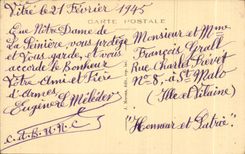 Vitré ce 21 Février 1945
CARTE POSTALE
Que Notre Dame de
La Peinière, vous protège
et Vous garde, et vous
accorde le Bonheur
Votre Ami et Frère
d'armes
Eugène
Monsieur et Mme
François Grall
Rue Charles
N° 8, à St Malo
(Ille et Vilaine)
"Honneur et Patrie"